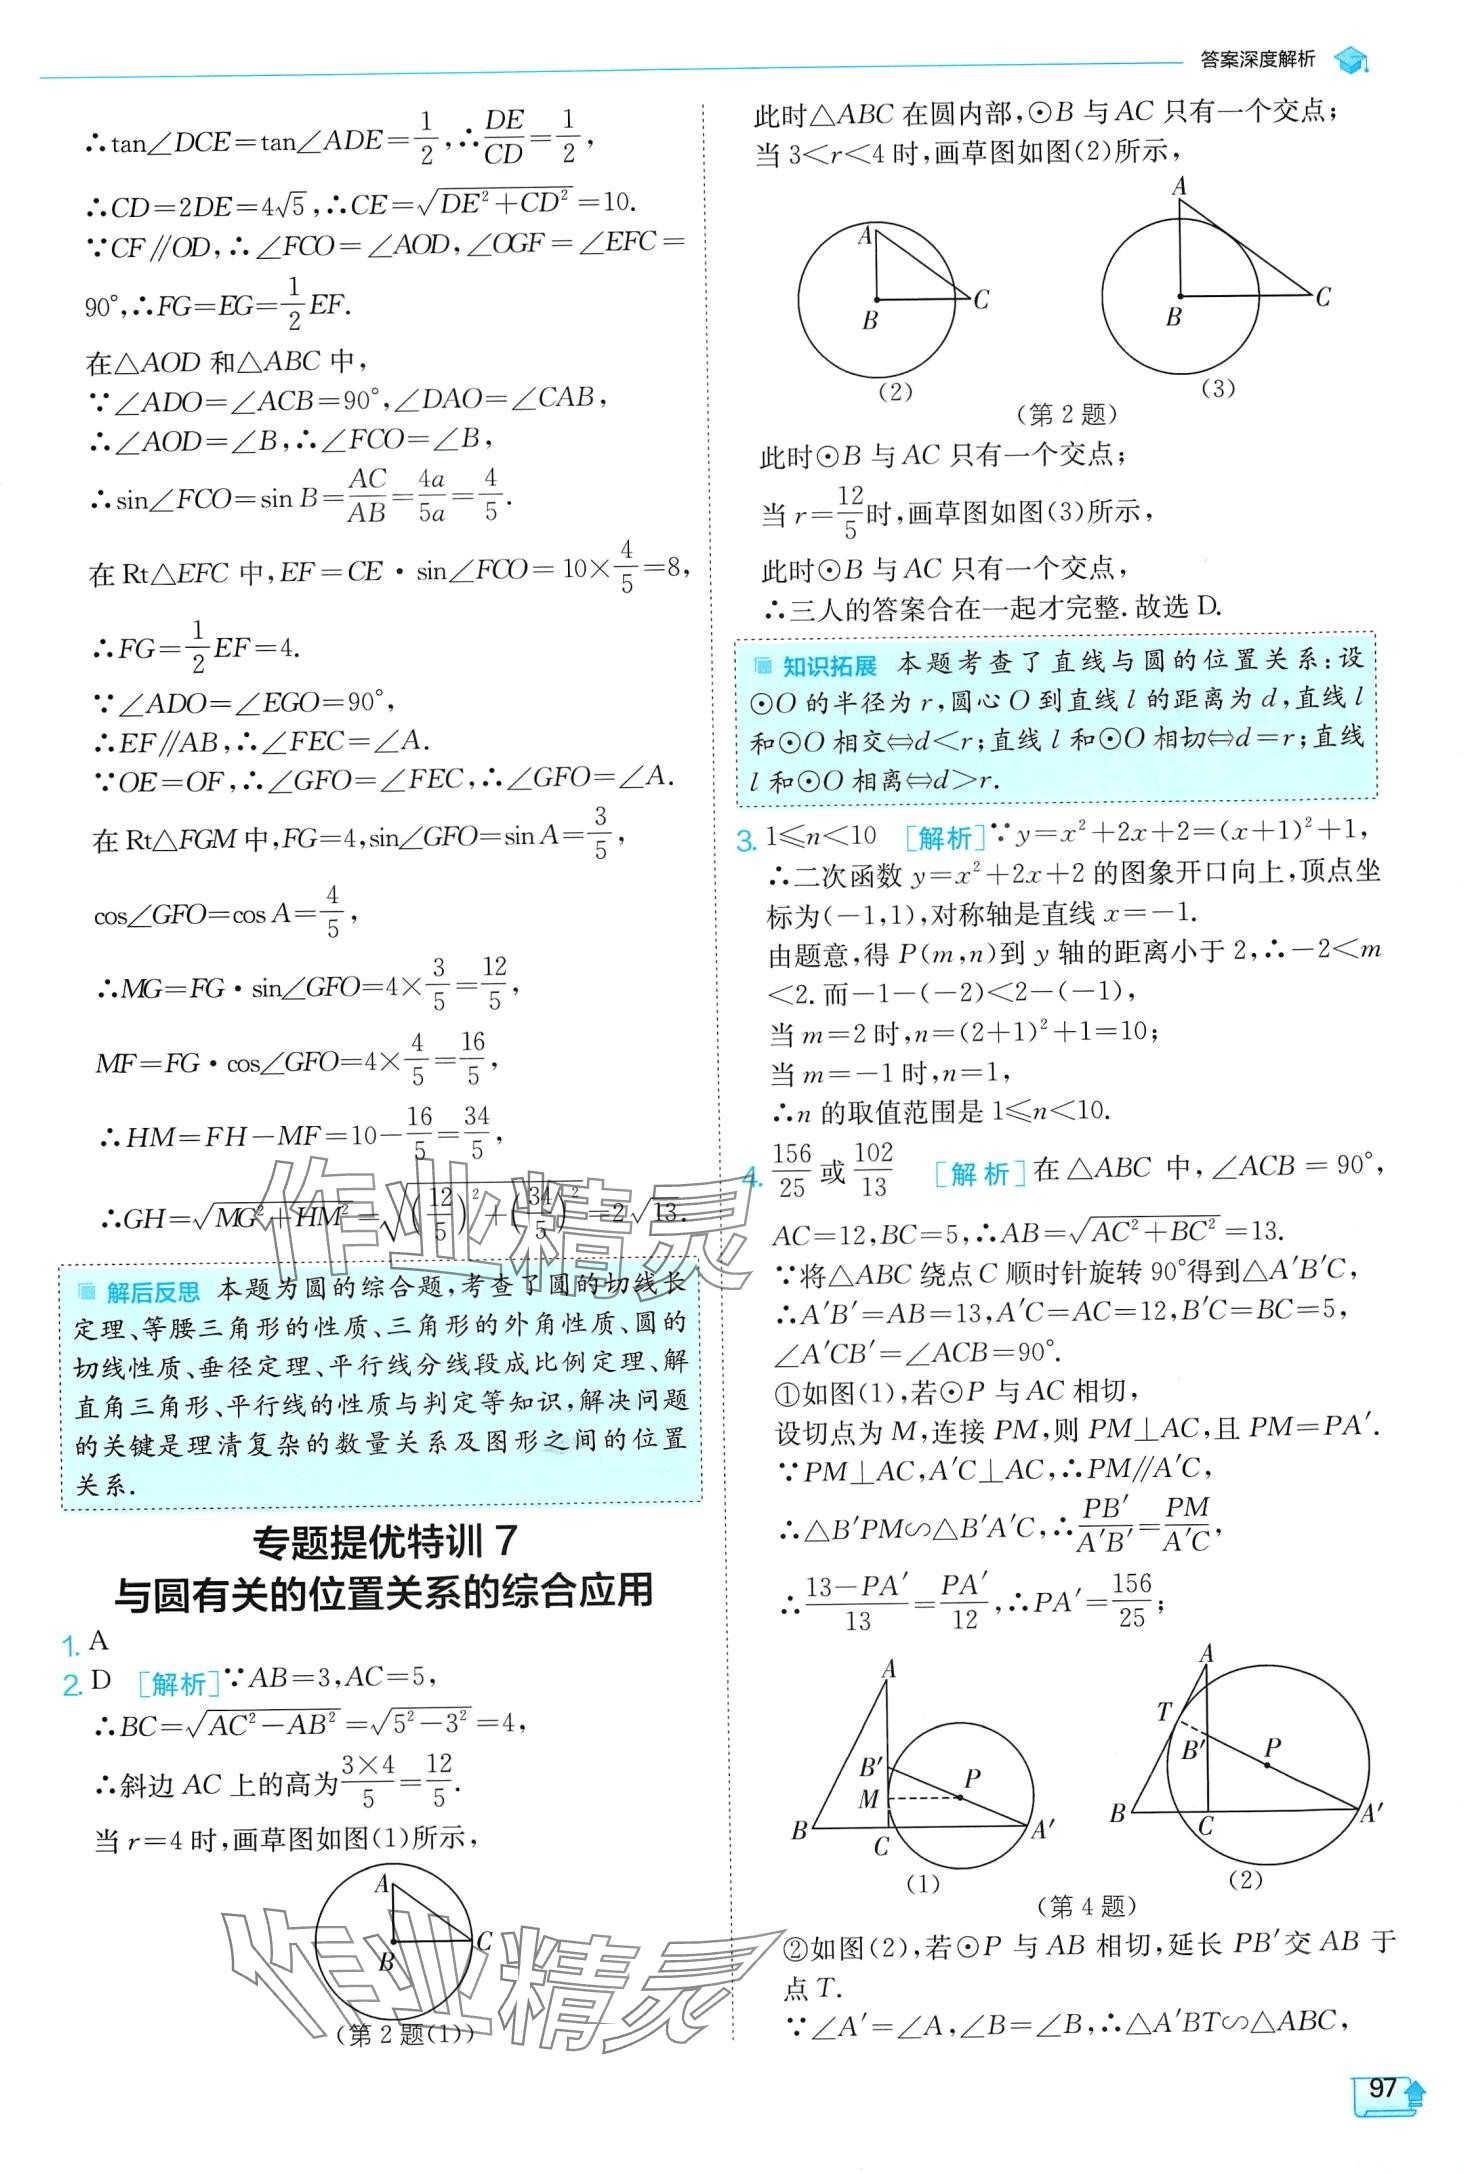 答案深度解析
∴tan∠DCE=tan∠ADE=1/2,∴DE/CD=1/2,
∴CD=2DE=4√5,∴CE=√(DE²+CD²)=10.
∵CF∥OD,∴∠FCO=∠AOD,∠OGF=∠EFC=
90°,∴FG=EG=1/2EF.
在△AOD 和△ABC 中,
∵∠ADO=∠ACB=90°,∠DAO=∠CAB,
∴∠AOD=∠B,∴∠FCO=∠B,
∴sin∠FCO=sin B=AC/AB=4a/5a=4/5.
在 Rt△EFC 中,EF=CE·sin∠FCO=10×4/5=8,
∴FG=1/2EF=4.
∵∠ADO=∠EGO=90°,
∴EF∥AB,∴∠FEC=∠A.
∵OE=OF,∴∠GFO=∠FEC,∴∠GFO=∠A.
在 Rt△FGM 中,FG=4,sin∠GFO=sin A=3/5,
cos∠GFO=cos A=4/5,
∴MG=FG·sin∠GFO=4×3/5=12/5,
MF=FG·cos∠GFO=4×4/5=16/5,
∴HM=FH-MF=10-16/5=34/5,
∴GH=√(MG²+HM²)=√((12/5)²+(34/5)²)=2√13.
解后反思 本题为圆的综合题,考查了圆的切线长
定理、等腰三角形的性质、三角形的外角性质、圆的
切线性质、垂径定理、平行线分线段成比例定理、解
直角三角形、平行线的性质与判定等知识,解决问题
的关键是理清复杂的数量关系及图形之间的位置
关系.
专题提优特训 7
与圆有关的位置关系的综合应用
1. A
2. D [解析]∵AB=3,AC=5,
∴BC=√(AC²-AB²)=√(5²-3²)=4,
∴斜边 AC 上的高为3×4/5=12/5.
当 r=4 时,画草图如图(1)所示,
A
B
C
(第 2 题(1))
此时△ABC 在圆内部,⊙B 与 AC 只有一个交点;
当 3<r<4 时,画草图如图(2)所示,
A
B
C
(2)
A
B
C
(3)
(第 2 题)
此时⊙B 与 AC 只有一个交点;
当 r=12/5时,画草图如图(3)所示,
此时⊙B 与 AC 只有一个交点,
∴三人的答案合在一起才完整.故选 D.
知识拓展 本题考查了直线与圆的位置关系:设
⊙O 的半径为 r,圆心 O 到直线 l 的距离为 d,直线 l
和⊙O 相交⇔d<r;直线 l 和⊙O 相切⇔d=r;直线
l 和⊙O 相离⇔d>r.
3. 1≤n<10 [解析]∵y=x²+2x+2=(x+1)²+1,
∴二次函数 y=x²+2x+2 的图象开口向上,顶点坐
标为(-1,1),对称轴是直线 x=-1.
由题意,得 P(m,n)到 y 轴的距离小于 2,∴-2<m
<2.而-1-(-2)<2-(-1),
当 m=2 时,n=(2+1)²+1=10;
当 m=-1 时,n=1,
∴n 的取值范围是 1≤n<10.
4. 156/25或102/13 [解析]在△ABC 中,∠ACB=90°,
AC=12,BC=5,∴AB=√(AC²+BC²)=13.
∵将△ABC 绕点 C 顺时针旋转 90°得到△A′B′C,
∴A′B′=AB=13,A′C=AC=12,B′C=BC=5,
∠A′CB′=∠ACB=90°.
①如图(1),若⊙P 与 AC 相切,
设切点为 M,连接 PM,则 PM⊥AC,且 PM=PA′.
∵PM⊥AC,A′C⊥AC,∴PM∥A′C,
∴△B′PM∽△B′A′C,∴PB′/A′B′=PM/A′C,
∴(13-PA′)/13=PA′/12,∴PA′=156/25;
A
B′
M
P
B
C
A′
(1)
A
T
B′
P
B
C
A′
(2)
(第 4 题)
②如图(2),若⊙P 与 AB 相切,延长 PB′交 AB 于
点 T.
∵∠A′=∠A,∠B=∠B,∴△A′BT∽△ABC,
97
作业精灵
作业精灵